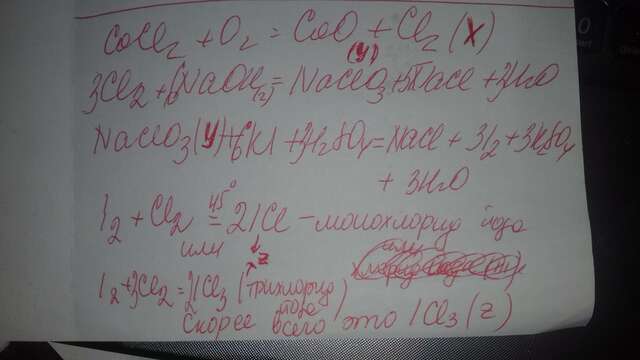 CoCl2 + O2 = CoO + Cl2 (X)
(y)
3Cl2 + 6NaOH(г) = NaClO3 + 5NaCl + 3H2O
NaClO3(y) + 6KI + 3H2SO4 = NaCl + 3I2 + 3K2SO4
+ 3H2O
I2 + Cl2 45° = 2ICl – монохлорид йода
или z или
I2 + 3Cl2 = 2ICl3 (трихлорид йода)
Скорее всего это ICl3 (z)